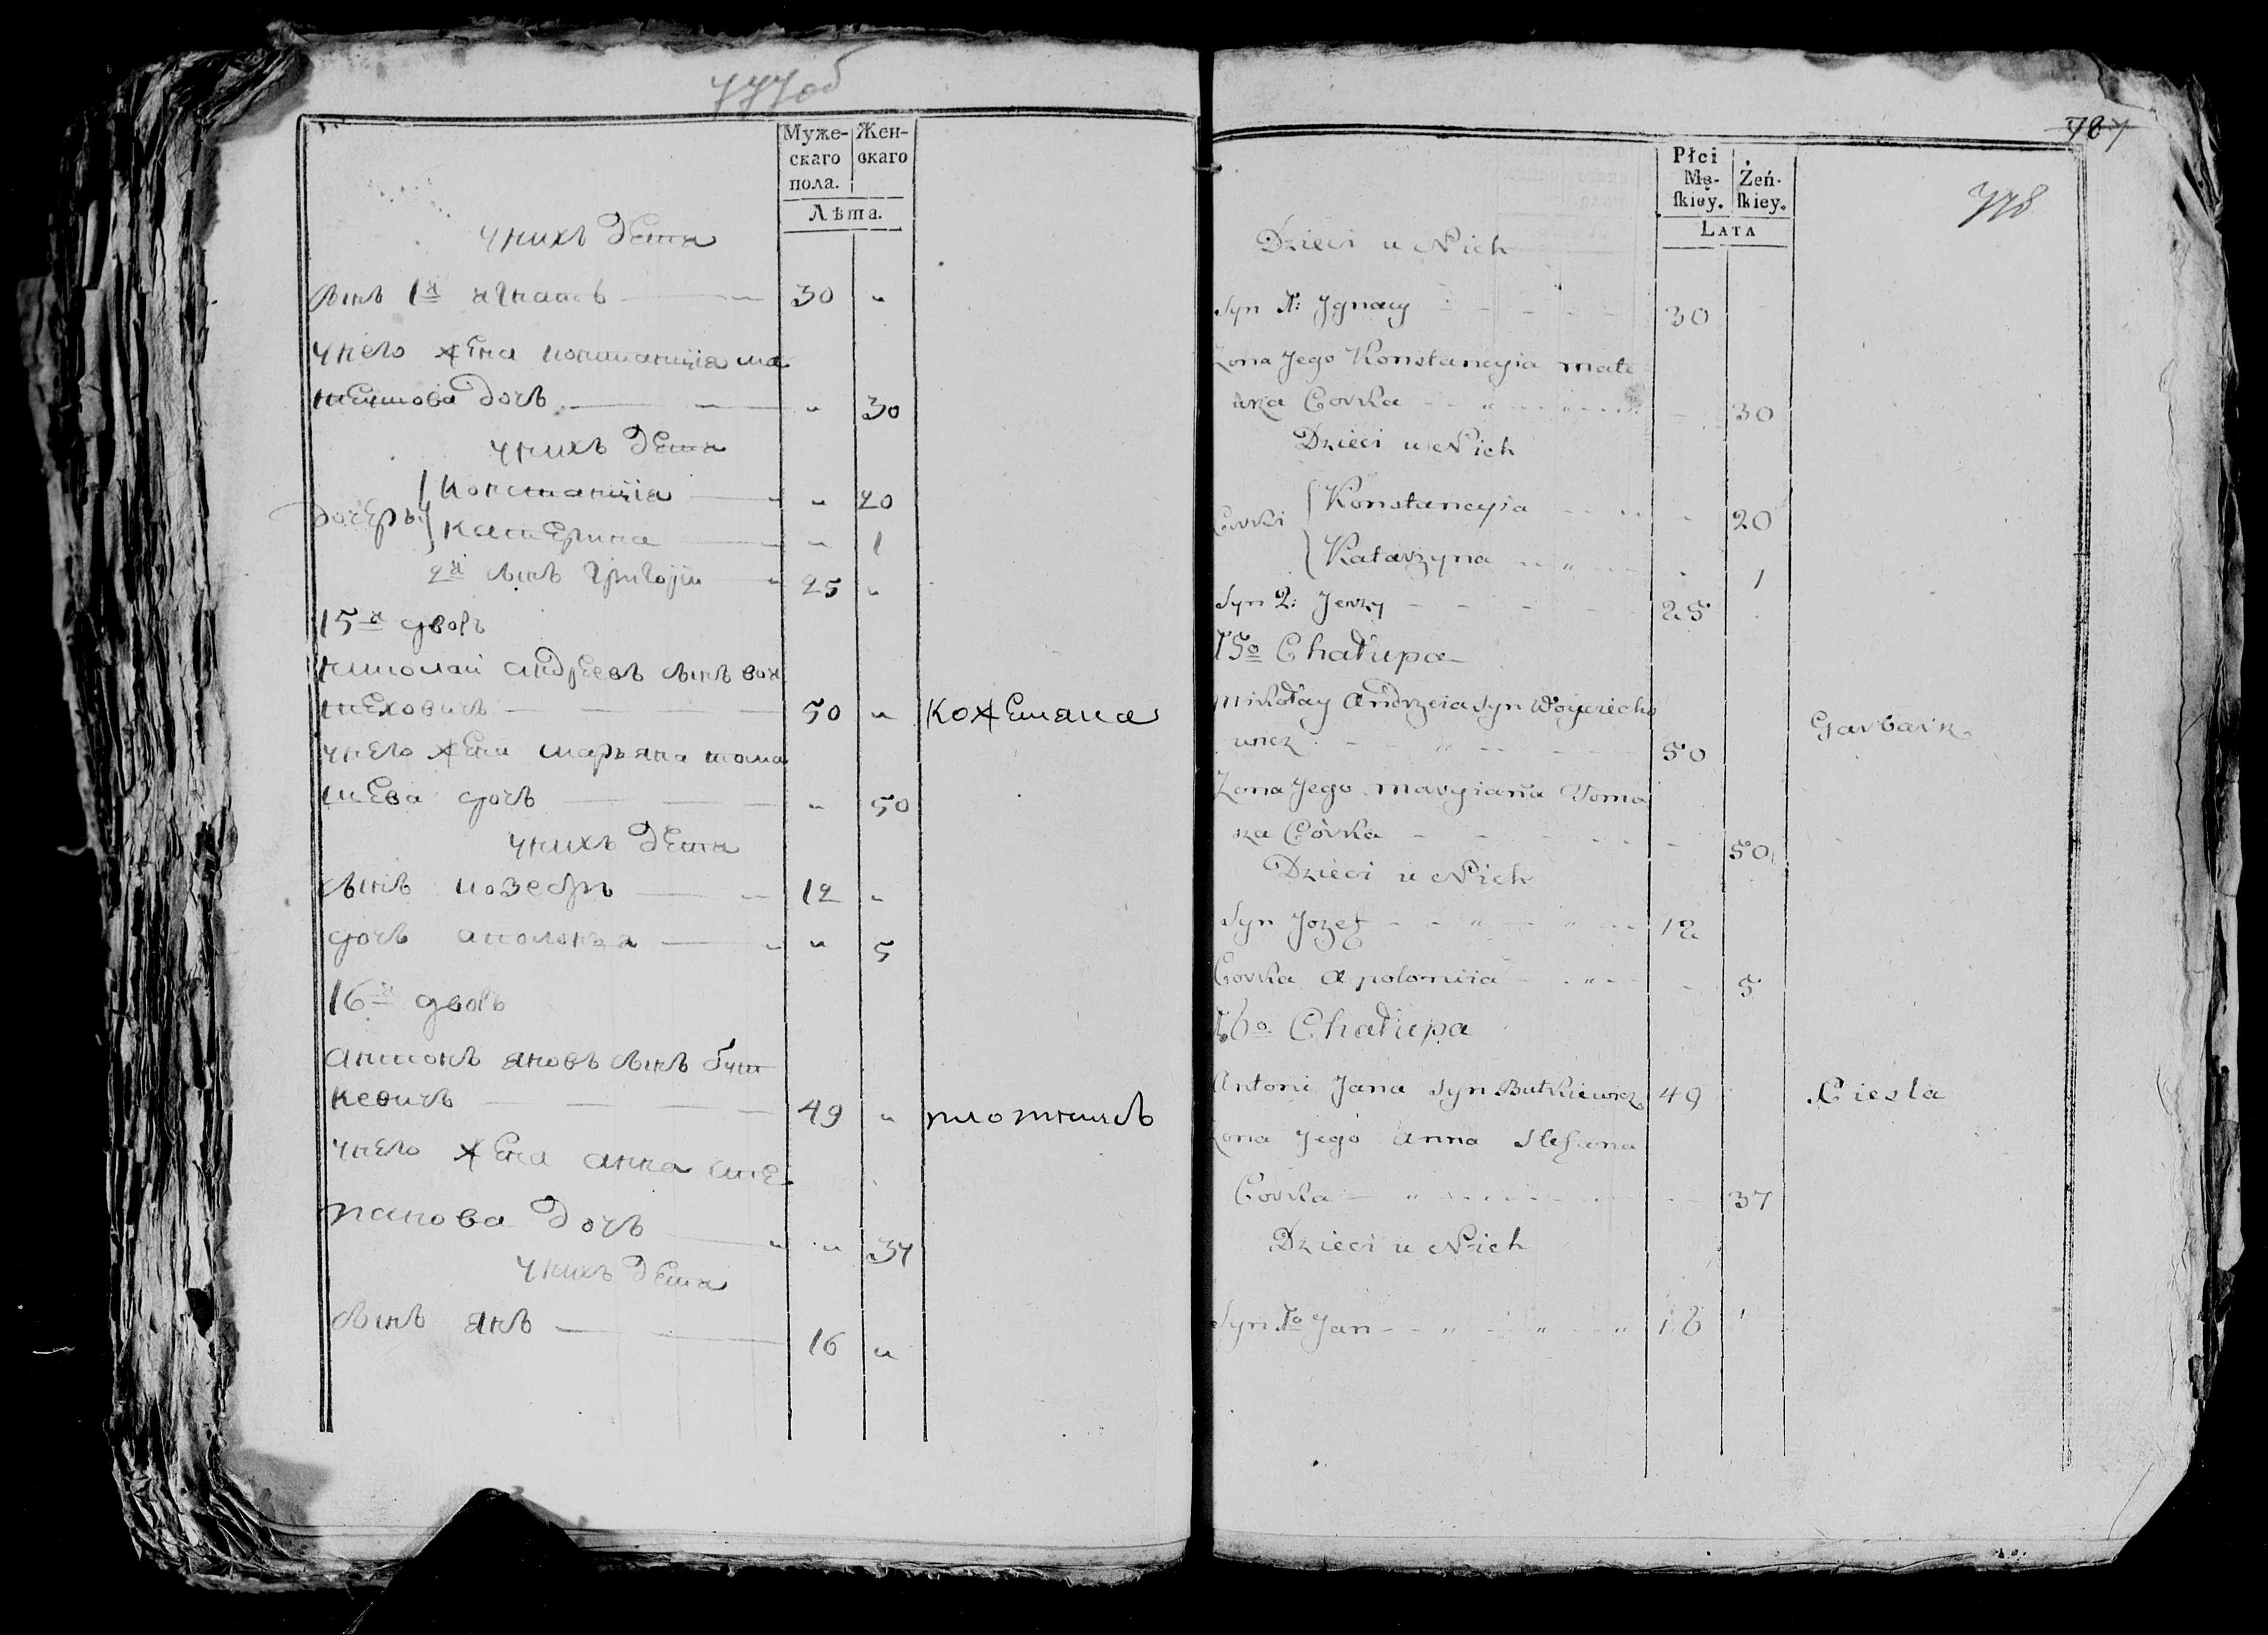 777об
Муже- Жен-
скаго скаго
пола.
Лѣта.
у нихъ дети
сынъ 1й игнась 30 "
у него жена констанція ма
теушова дочь " 30
у нихъ дети
дочеръ { Констанція " 20
Катерина " 1
2й сынъ Григорій 25 "
15й дворъ
николай андреевъ сынъ вои
техович 50 " кожемяка
у него жена марьяна тома
шева дочь " 50
у нихъ дети
сынъ иозефъ 12 "
дочь аполонья " 5
16й дворъ
антонъ яновъ сынъ бут
кевичъ 49 " плотникъ
у него жена анна сте
панова дочь " 37
у нихъ дети
сынъ янъ 16 "
787
778
Płci
Mę- Żeń-
ſkiey. ſkiey.
LATA
Dzieci u Nich
Syn 1: Jgnacy 30
Zona Jego Konstancyia mate
usza Corka 30
Dzieci u Nich
Corki { Konstancyia 20
Katarzyna 1
Syn 2: Jerzy 25
15o Chałupa
Mikołay Andrzeia syn Woyciecho
wicz 50 Garbarz
Zona Jego maryianna Toma
sza Córka 50
Dzieci u Nich
Syn Jozef 12
Corka Apolonia 5
16o Chałupa
Antoni Jana Syn Butkiewicz 49 Ciesla
Zona Jego Anna Stefana
Corka 37
Dzieci u Nich
Syn 1o Jan 16